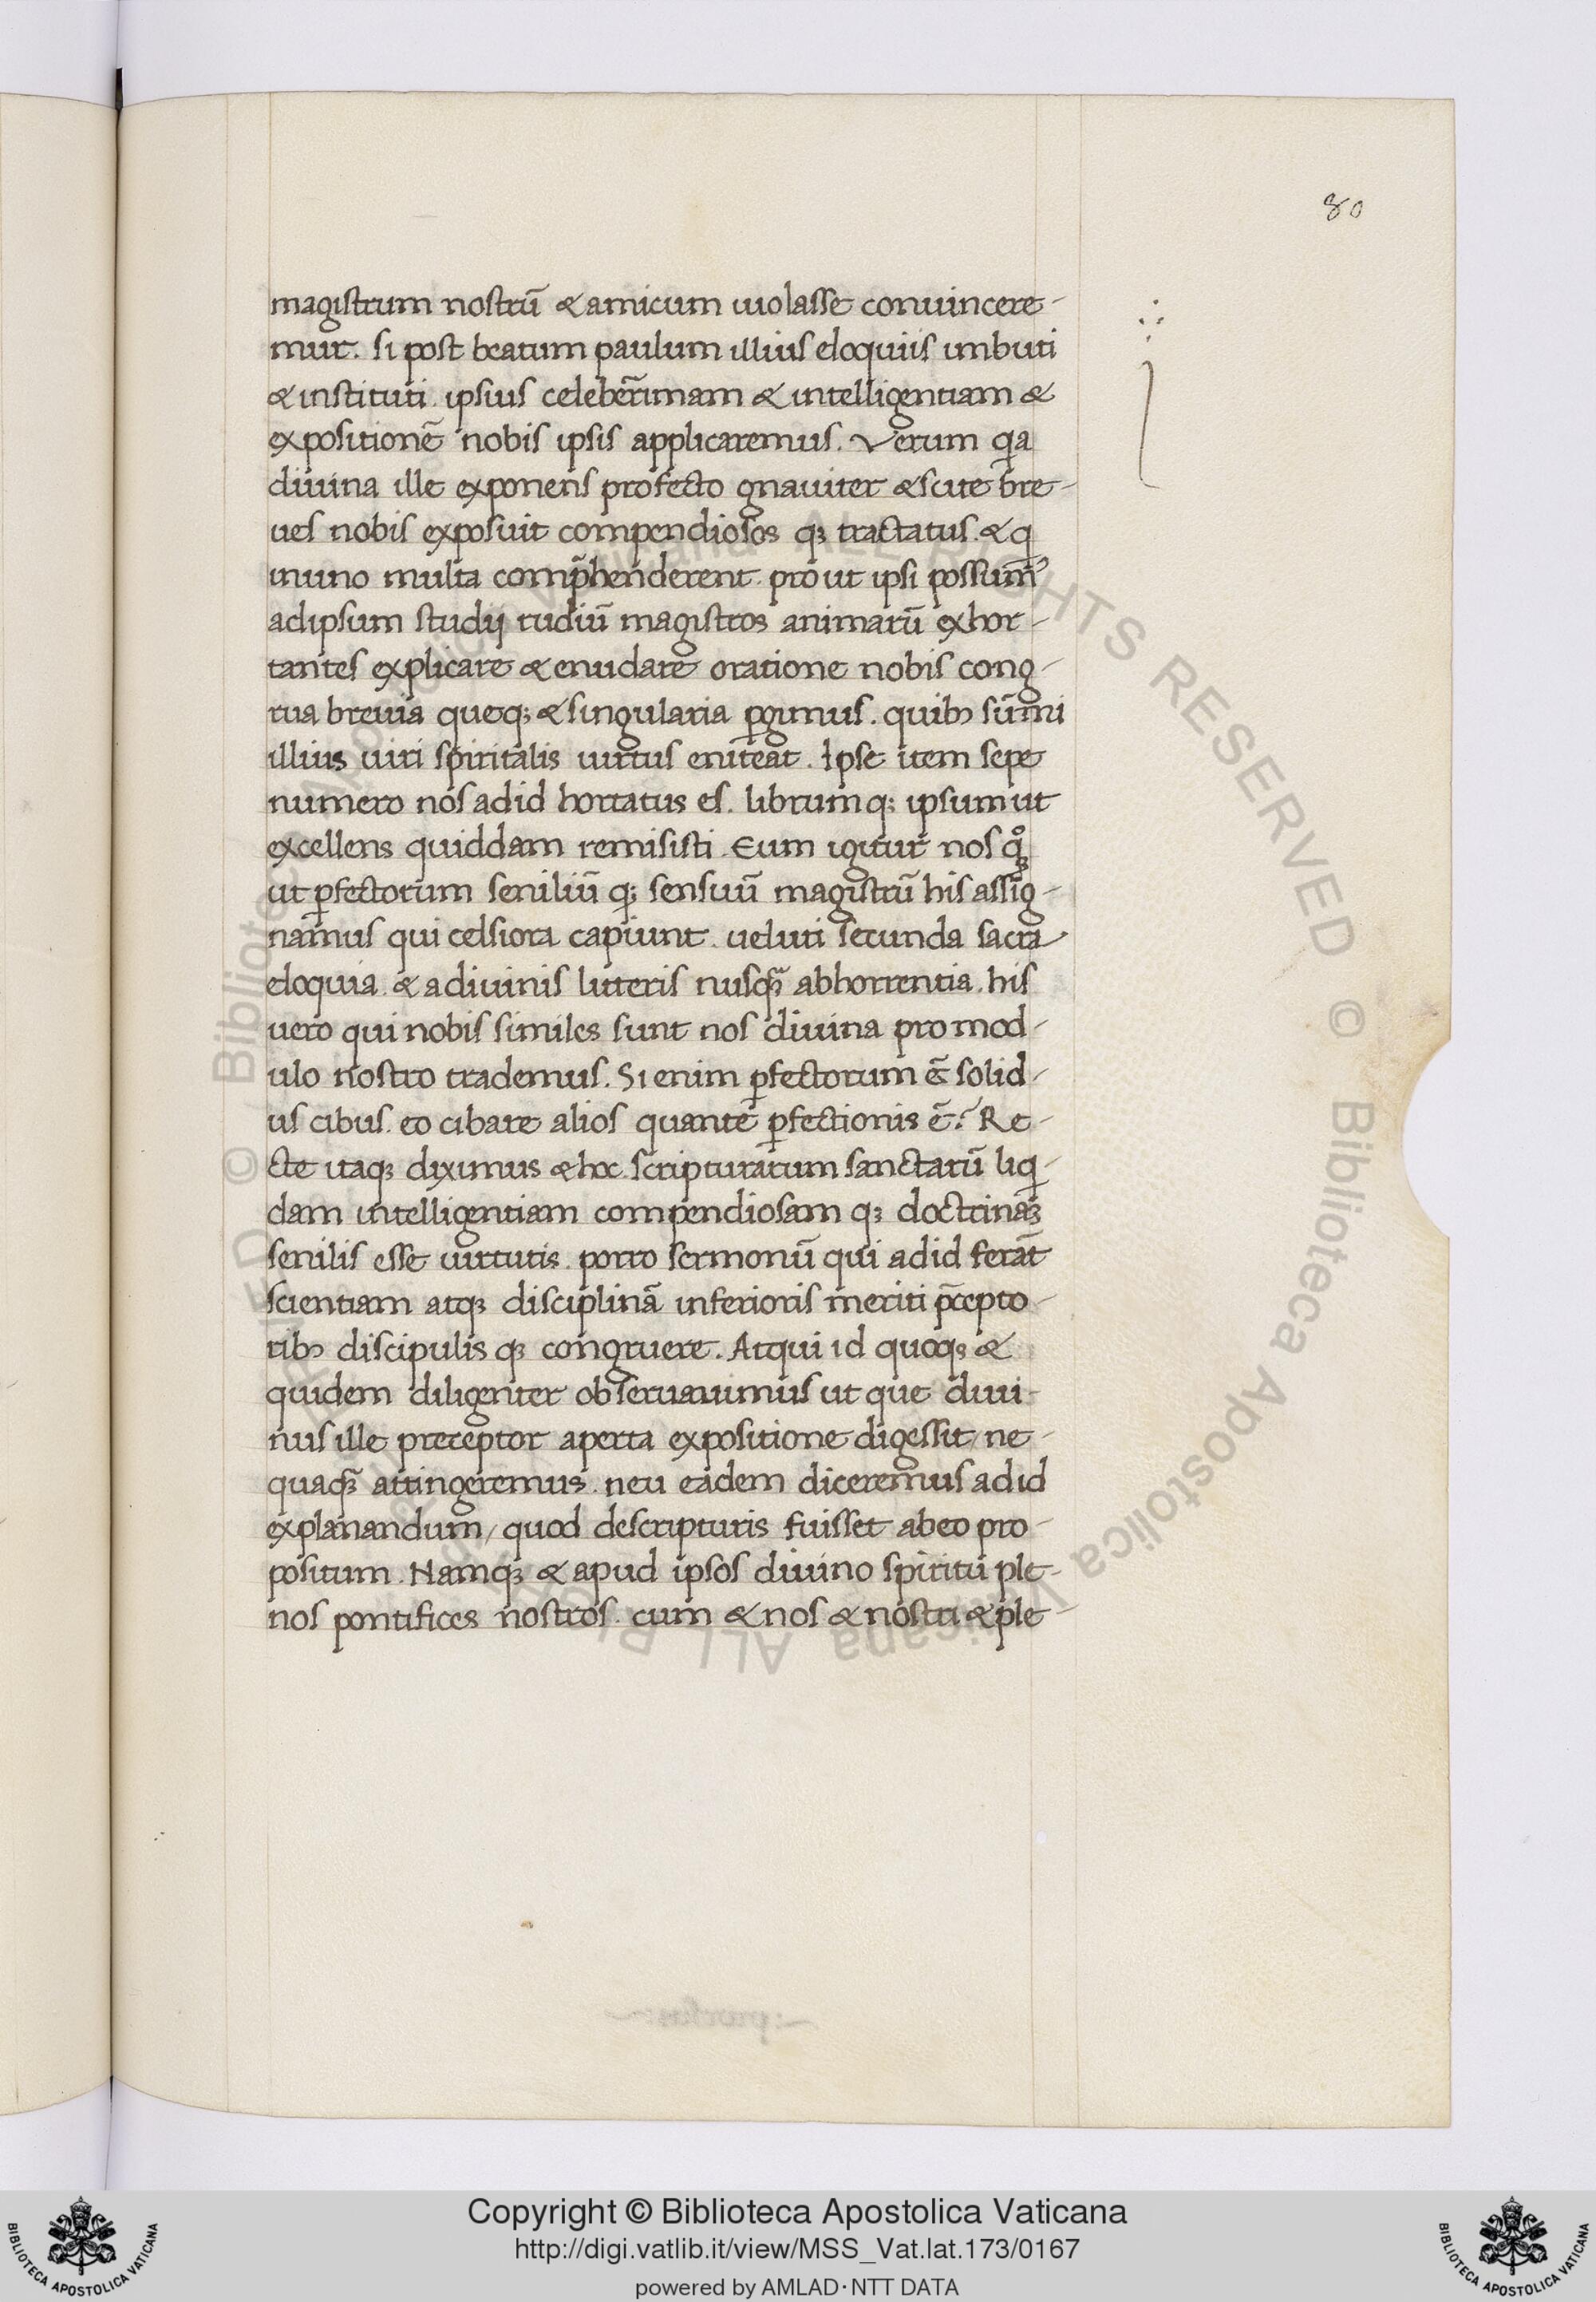 80
magistrum nostrū & amicum uiolasse conuincere-
mur. si post beatum paulum illius eloquiis imbuti
& instituti. ipsius celeber̄imam & intelligentiam &
expositionē nobis ipsis applicaremus. Verum qa
diuina ille exponens profecto gnauiter & scite bre-
ues nobis exposuit compendiosos qꝫ tractatus. & q
inuno multa comp̄henderent. prout ipsi possum᾽
adipsum studij rudiū magistros animarū exhor-
tantes explicare & enudare oratione nobis cong-
rua breuia queqꝫ & singularia ꝑgimus. quibꝫ sūmi
illius uiri spiritalis uirtus eniteat. Ipse item sepe
numero nos adid hortatus es. librumqꝫ ipsum ut
excellens quiddam remisisti. Eum igitur nos qͦꝫ
ut ꝑfectorum seniliū qꝫ sensuū magistrū his assig-
namus qui celsiora capiunt. ueluti secunda sacra
eloquia. & adiuinis litteris nusqꝫ̄ abhorrentia. his
uero qui nobis similes sunt nos diuina pro mod-
ulo nostro trademus. Si enim ꝑfectorum ē solid-
us cibus. eo cibare alios quante ꝑfectionis ē? Re-
cte itaqꝫ diximus & hoc. scripturarum sanctarū liq-
dam intelligentiam compendiosam qꝫ doctrinaꝫ
senilis esse uirtutis. porro sermonū qui adid ferāt
scientiam atqꝫ disciplinā inferioris meriti p̄cepto-
ribꝫ discipulis qꝫ congruere. Atqui id quoqꝫ &
quidem diligenter obseruauimus ut que diui-
nus ille preceptor aperta expositione digessit/ ne-
quaqꝫ̄ attingeremus. neu eadem diceremus adid
explanandum/ quod descripturis fuisset abeo pro-
positum. Namqꝫ & apud ipsos diuino spiritu ple-
nos pontifices nostros. cum & nos & nostri & ple-
Copyright © Biblioteca Apostolica Vaticana
http://digi.vatlib.it/view/MSS_Vat.lat.173/0167
powered by AMLAD·NTT DATA
BIBLIOTECA APOSTOLICA VATICANA
BIBLIOTECA APOSTOLICA VATICANA